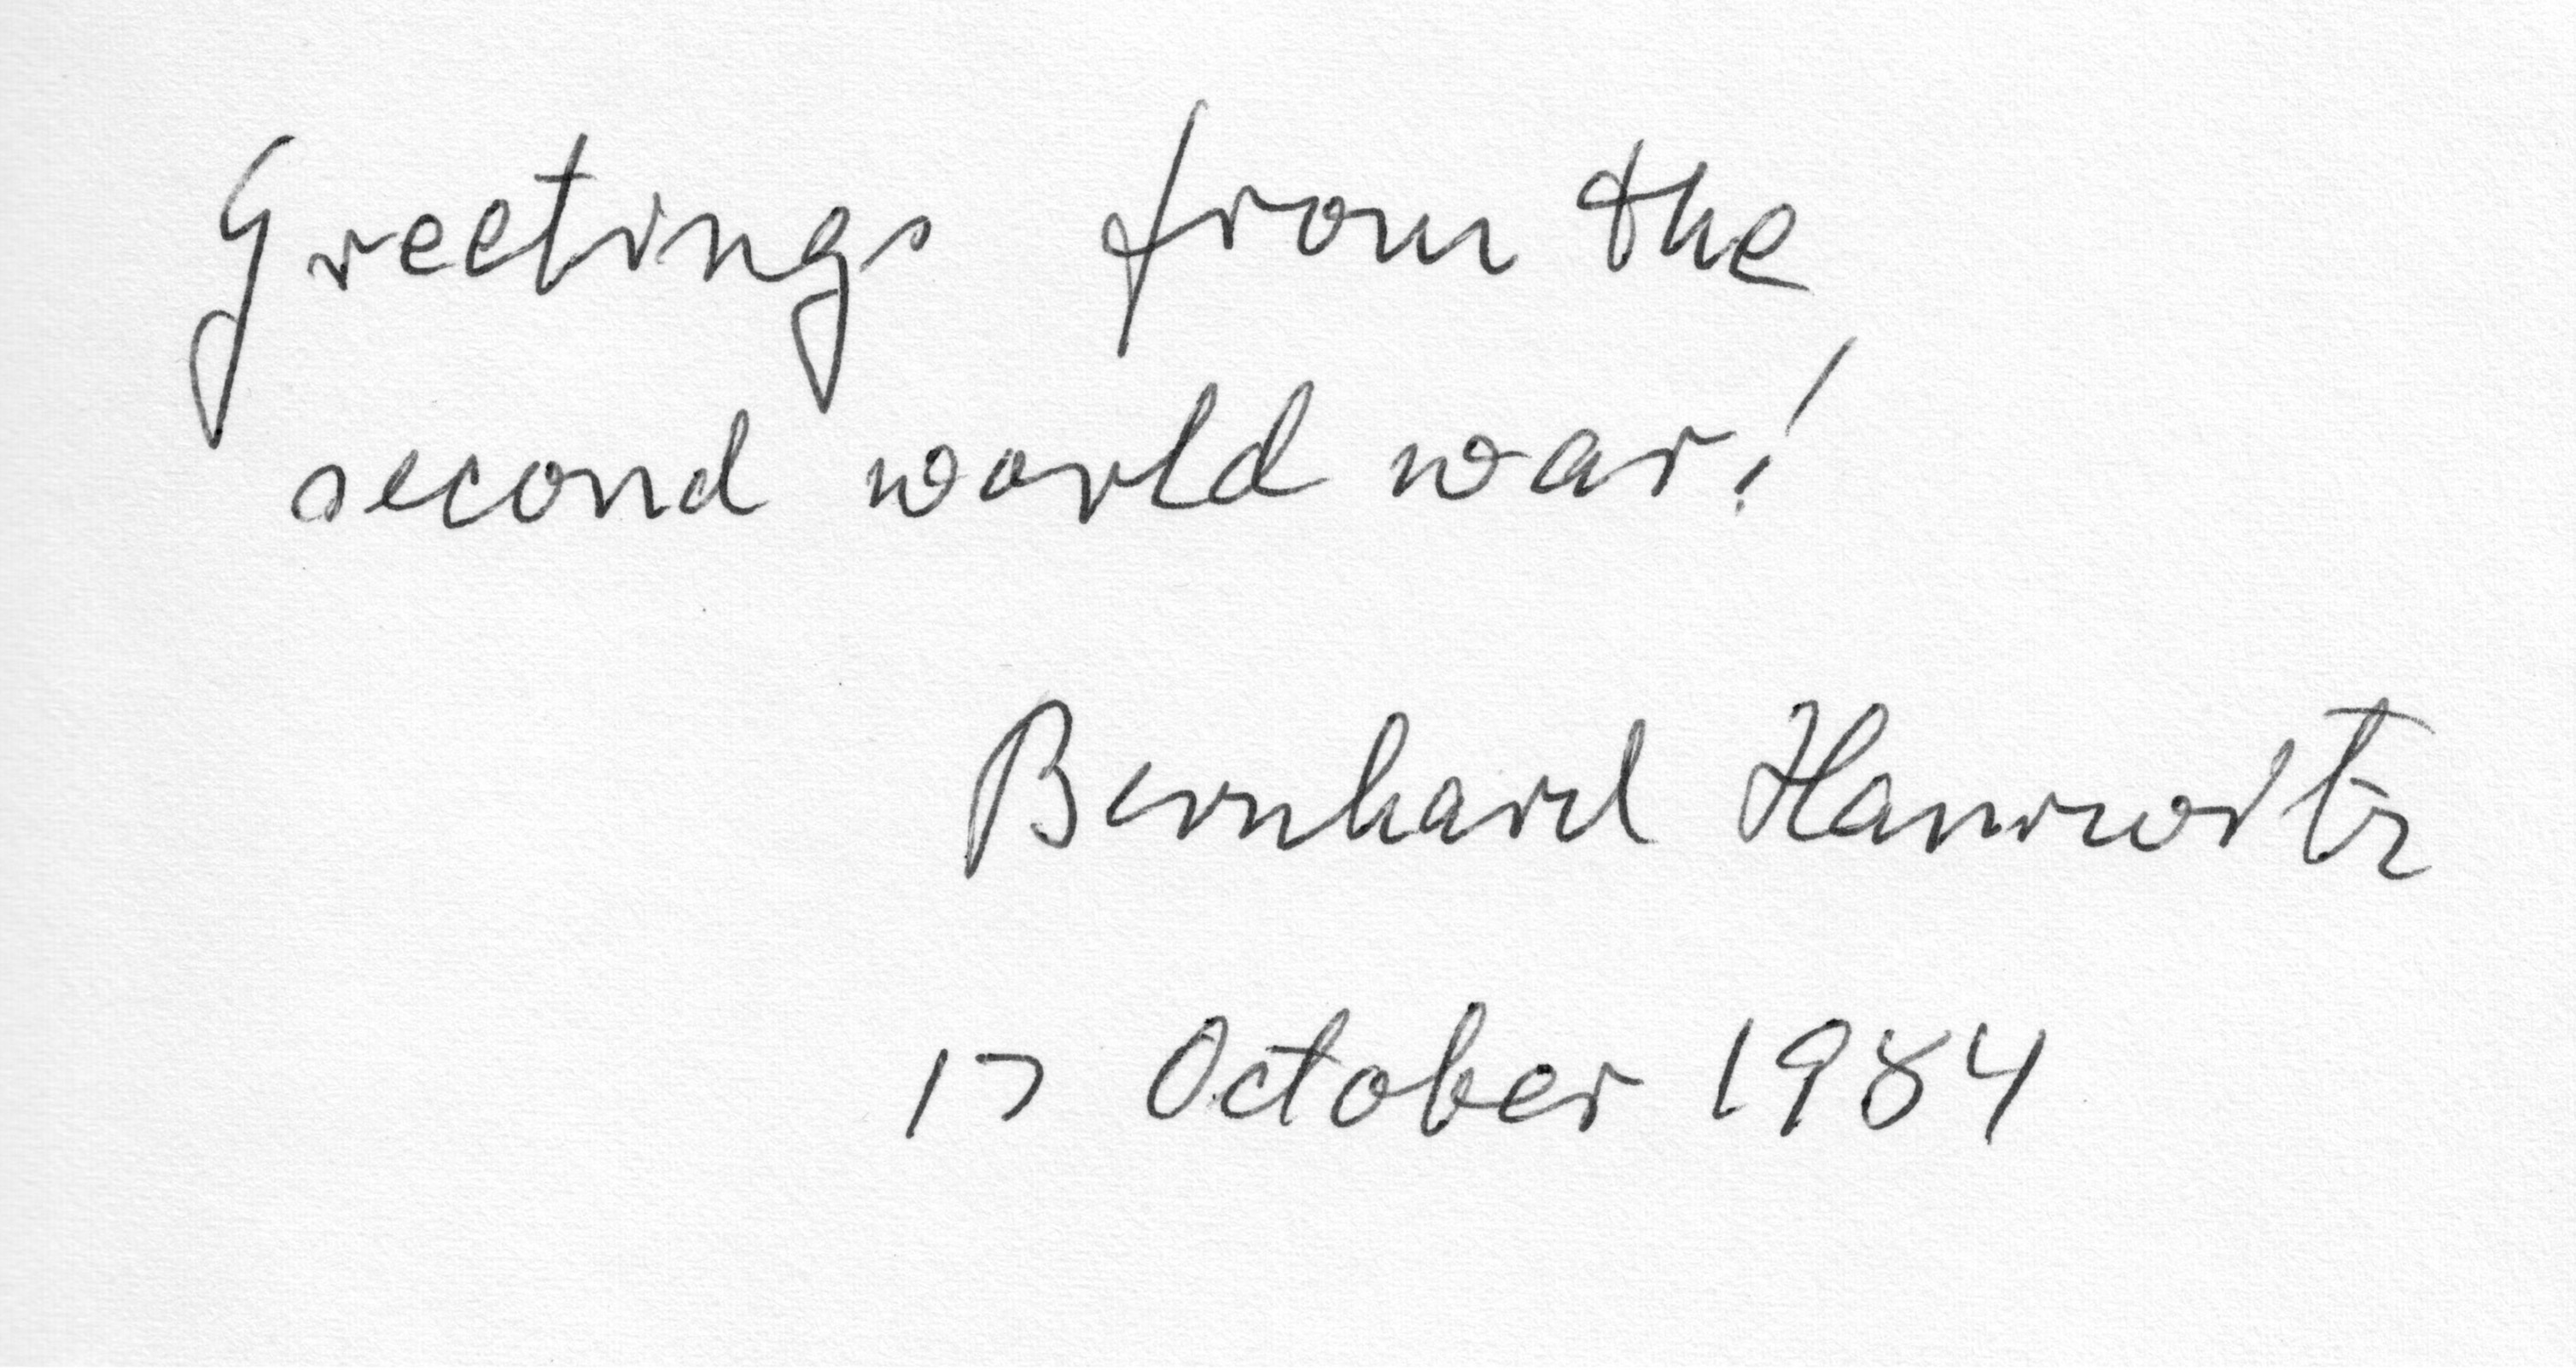 Greetings from the
second world war!
Bernhard Haurwitz
17 October 1984